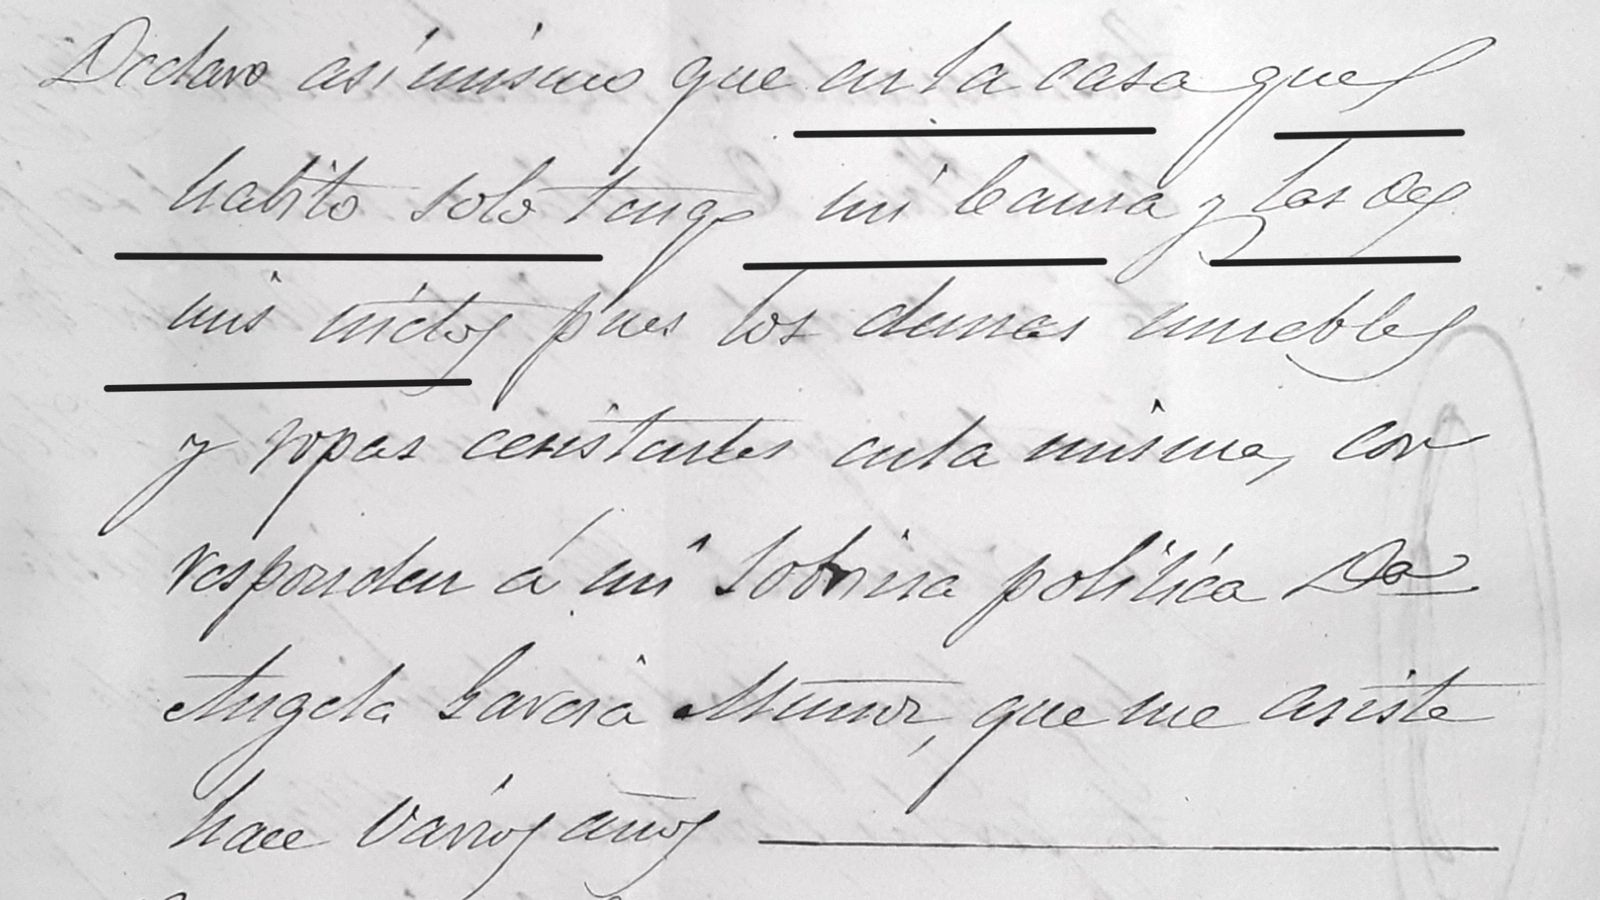 Declaro asi mismo que en la casa que
habito solo tengo mi cama y las de
mis nietos pues los demas muebles
y ropas constantes en la misma, cor
responden á mi sobrina politica Da
Angela Garcia Muñoz, que me asiste
hace varios años